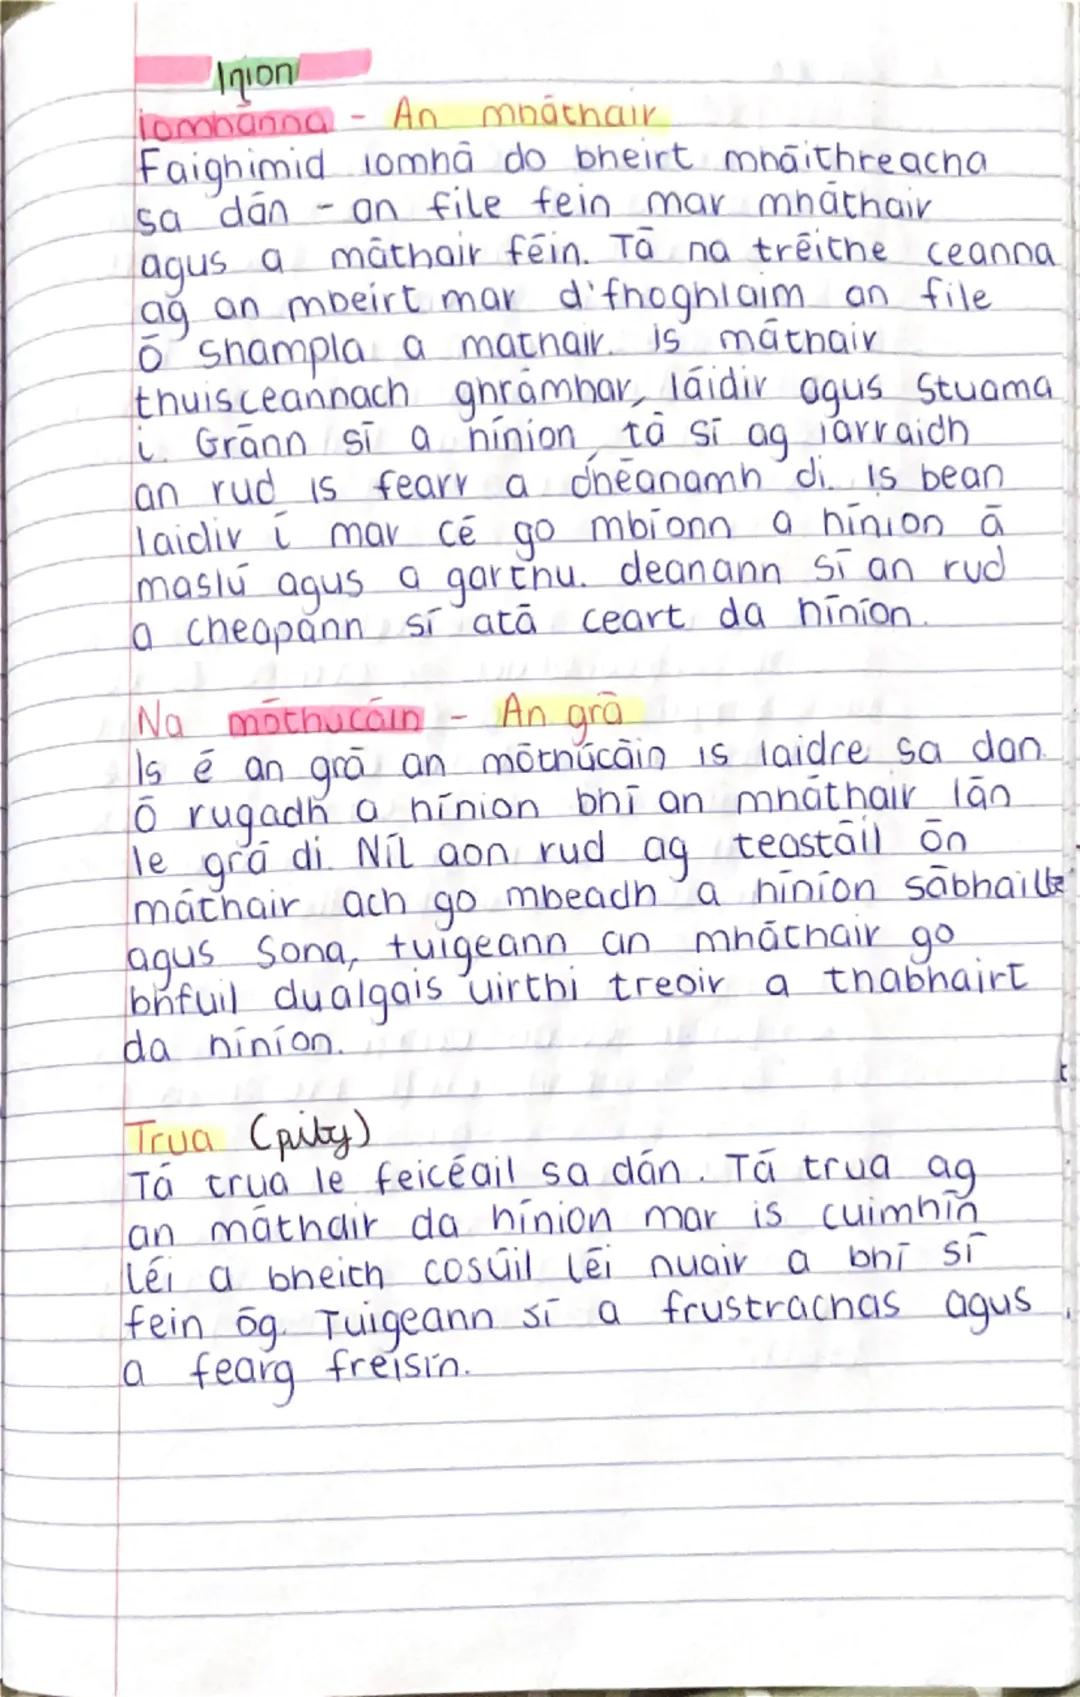 Iníon
íomhánna - An mháthair
Faighimid íomhá do bheirt mháithreacha
sa dán - an file fein mar mháthair
agus a máthair féin. Tá na tréithe ceanna
ag an mbeirt mar d'fhoghlaim an file
ó shampla a mathair. Is máthair
thuisceannach ghrámhar, láidir agus Stuama
í. Gránn sí a hínion, tá sí ag iarraidh
an rud is fearr a dhéanamh di. Is bean
laidir í mar cé go mbíonn a hínion á
maslú agus a garthu. deanann sí an rud
a cheapann sí atá ceart da hínion.
Na mothucáin - An grá
Is é an grá an móthúcáin is laidre sa dan.
Ó rugadh a hínion bhí an mháthair lán
le grá di. Níl aon rud ag teastáil ón
máthair ach go mbeadh a hínion sábhailte
agus Sona, tuigeann an mháthair go
bhfuil dualgais uirthi treoir a thabhairt
da hiníon.
Trua (pity)
Tá trua le feicéail sa dán. Tá trua ag
an máthair da hínion mar is cuimhin
léi a bheith cosúil léi nuair a bhí sí
fein óg. Tuigeann sí a frustrachas agus
a fearg freisín.